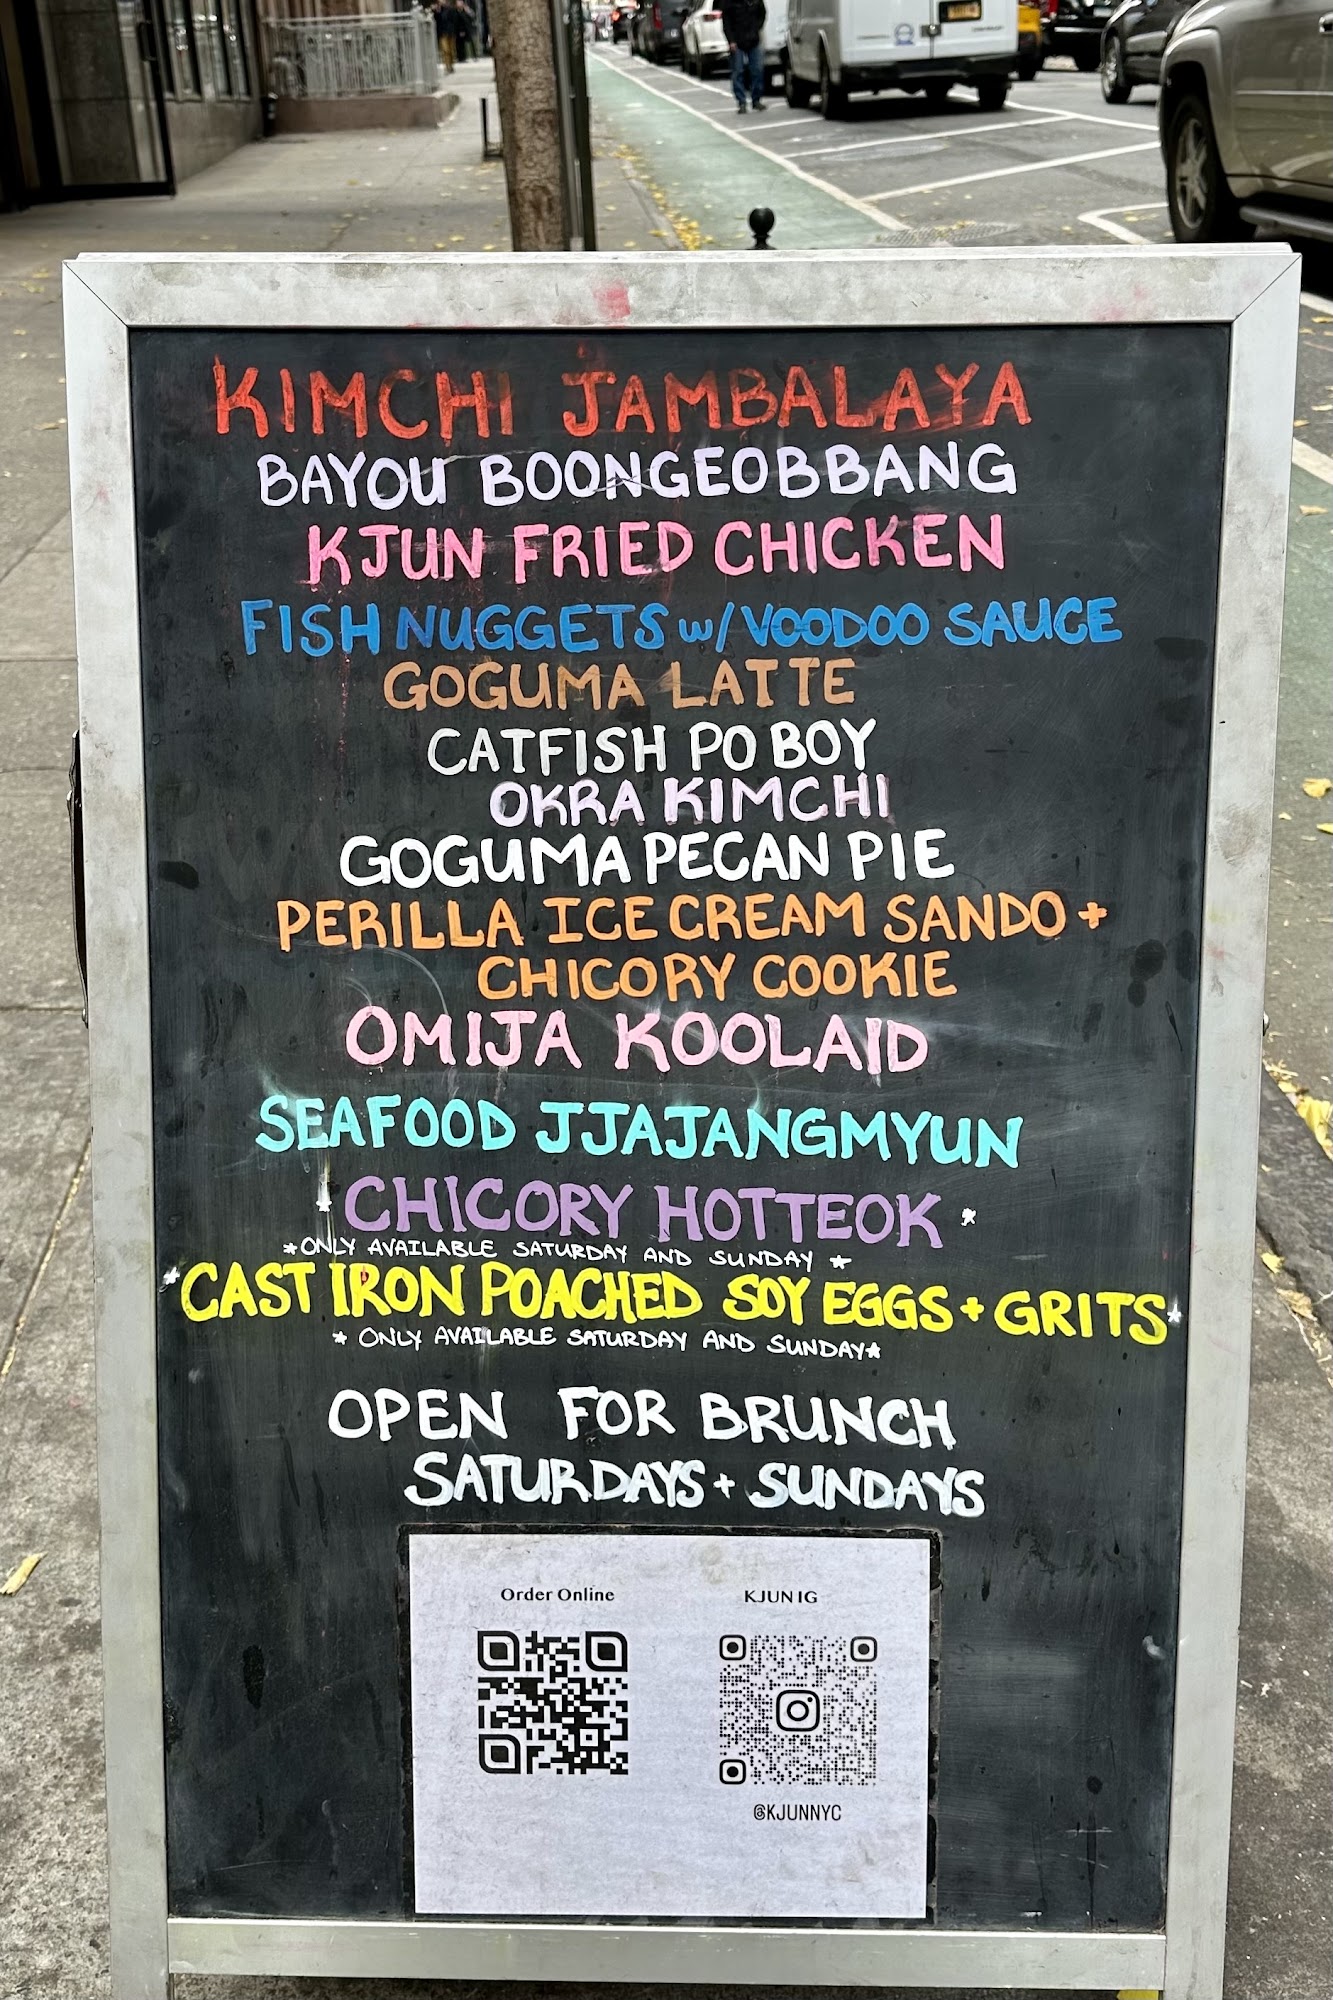 KIMCHI JAMBALAYA
BAYOU BOONGEOBBANG
KJUN FRIED CHICKEN
FISH NUGGETS w/VOODOO SAUCE
GOGUMA LATTE
CATFISH PO BOY
OKRA KIMCHI
GOGUMA PECAN PIE
PERILLA ICE CREAM SANDO +
CHICORY COOKIE
OMIJA KOOLAID
SEAFOOD JJAJANGMYUN
*CHICORY HOTTEOK*
*ONLY AVAILABLE SATURDAY AND SUNDAY *
*CAST IRON POACHED SOY EGGS + GRITS*
* ONLY AVAILABLE SATURDAY AND SUNDAY*
OPEN FOR BRUNCH
SATURDAYS + SUNDAYS
Order Online
KJUN IG
@KJUNNYC